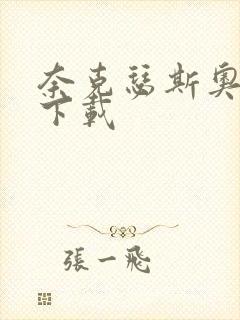 奈克瑟斯奥
下載
張一飛